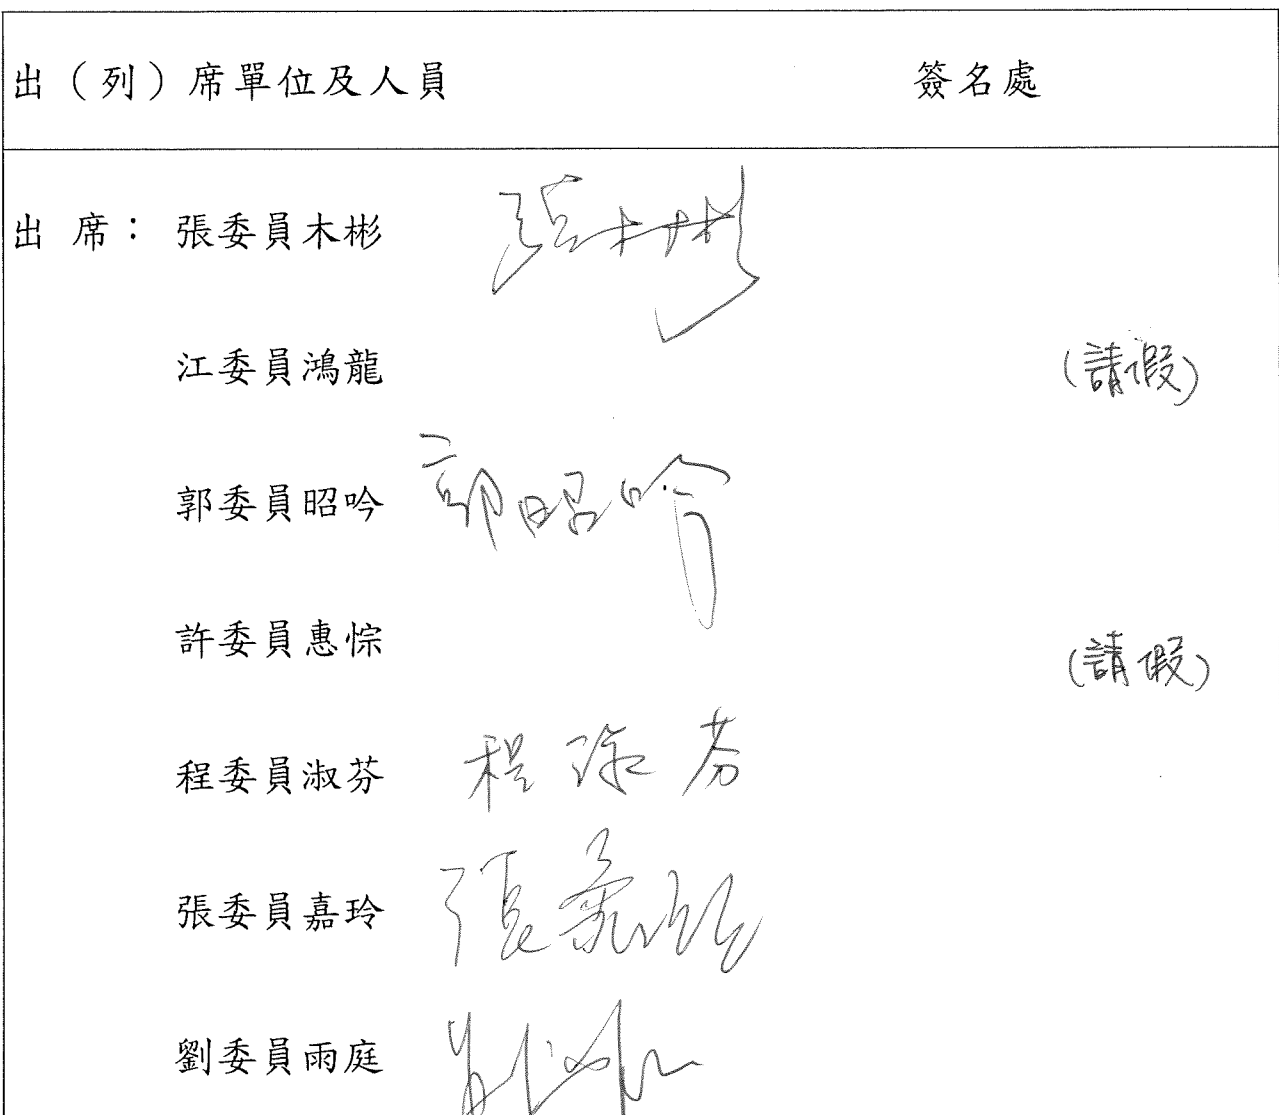 出（列）席單位及人員 簽名處
出 席： 張委員木彬 張木彬
江委員鴻龍 (請假)
郭委員昭吟 郭昭吟
許委員惠悰 (請假)
程委員淑芬 程淑芬
張委員嘉玲 張嘉玲
劉委員雨庭